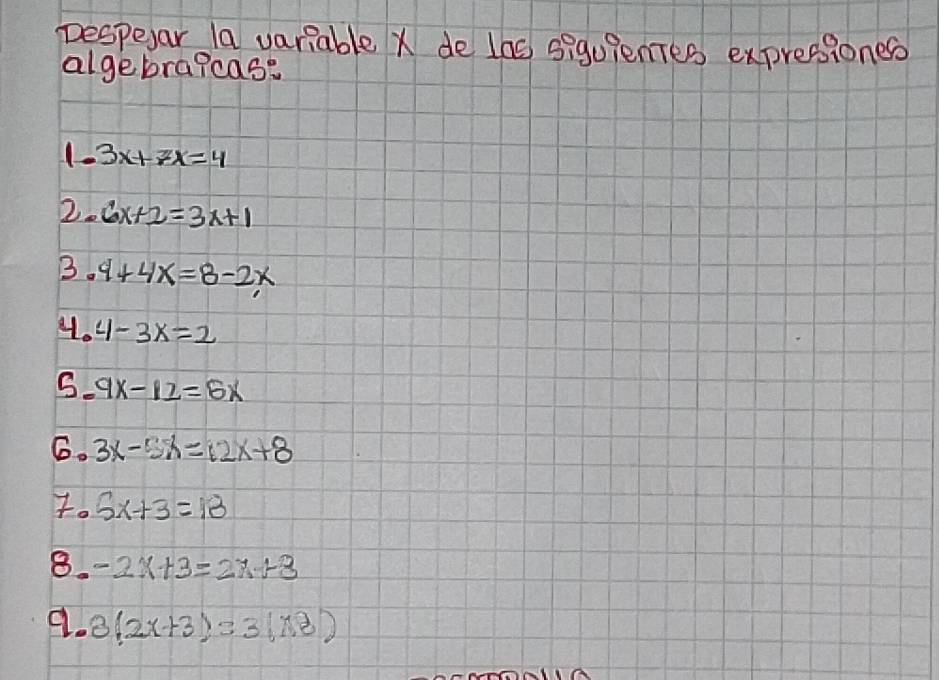 Despejar la variable X de las siguientes expresiones
algebraicas:
1. 3x+7x=4
2. 6x+2=3x+1
3. 9+4x=8-2x
4. 4-3x=2
5. 9x-12=6x
6. 3x-5x=12x+8
7. 5x+3=18
8. -2x+3=2x+8
9. 8(2x+3)=3(x8)